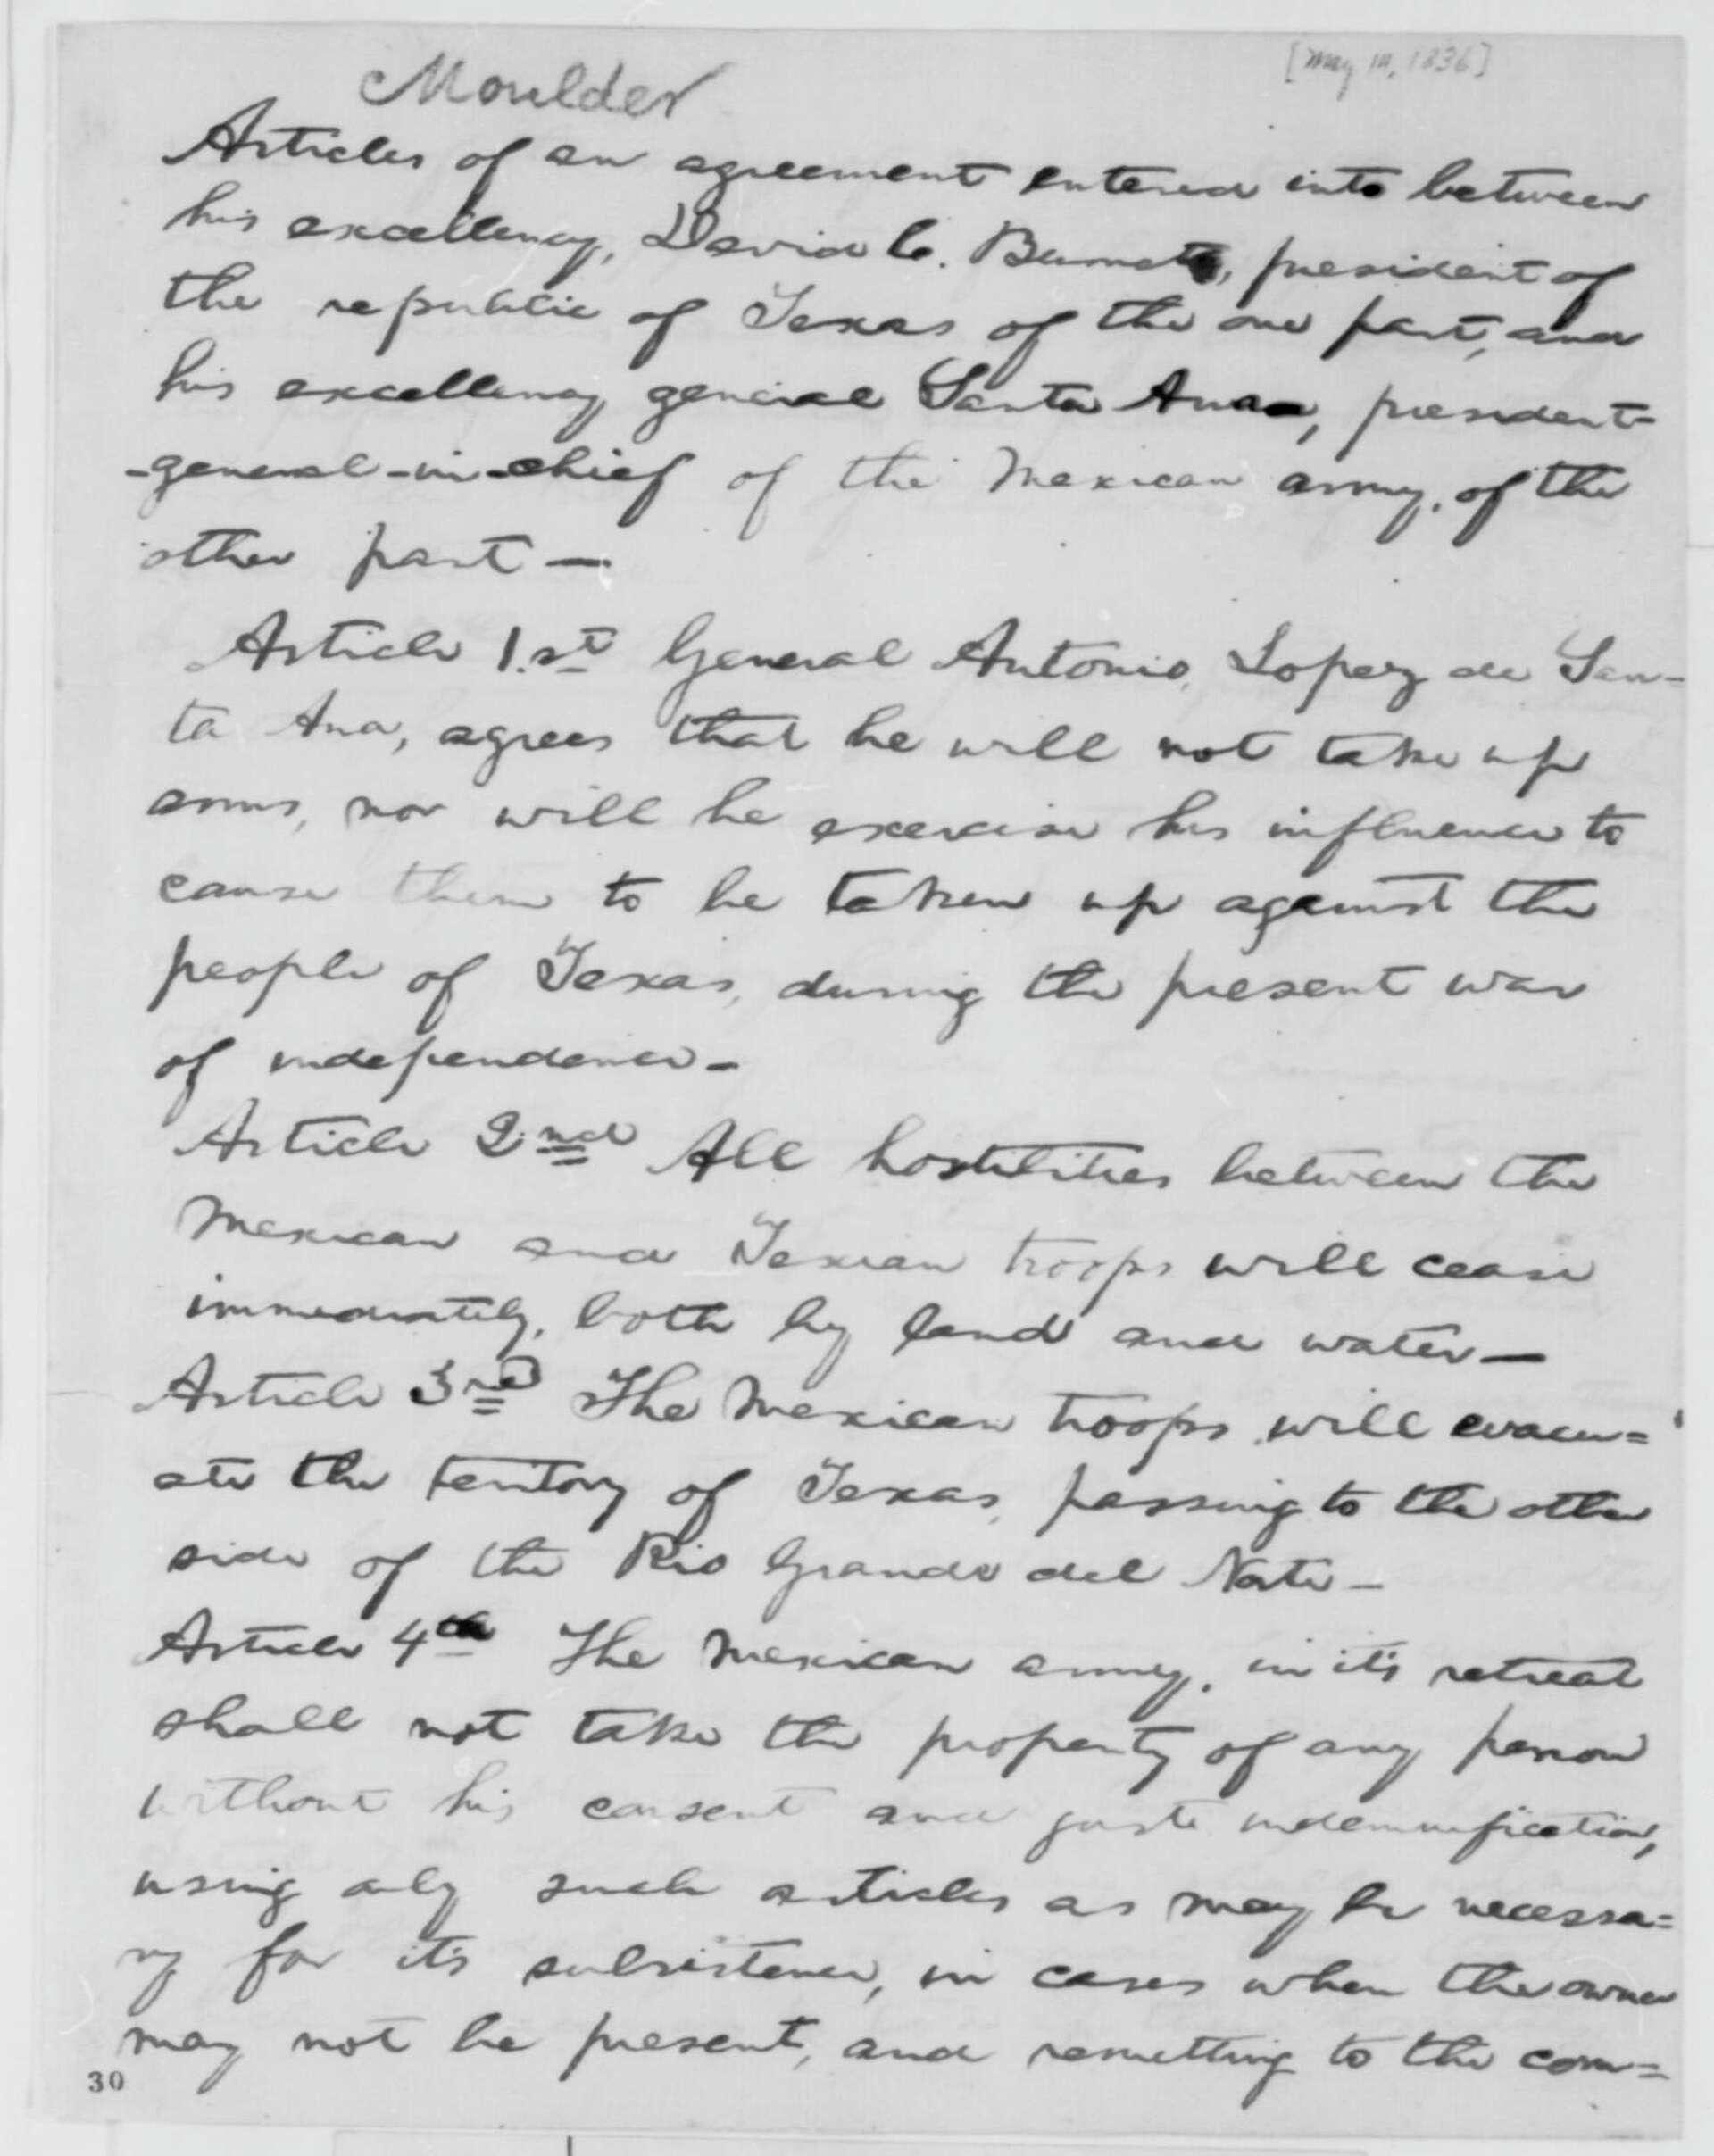 Moulder
[May 14, 1836]
Articles of an agreement entered into between
his excellency, David G. Burnet, president of
the republic of Texas of the one part, and
his excellency general Santa Ana, president-
-general-in-chief of the Mexican army, of the
other part —
Article 1.st General Antonio Lopez de San-
ta Ana, agrees that he will not take up
arms, nor will he exercise his influence to
cause them to be taken up against the
people of Texas, during the present war
of independence -
Article 2.nd All hostilities between the
Mexican and Texian troops will cease
immediately, both by land and water —
Article 3rd The Mexican troops will evacu=
ate the territory of Texas, passing to the other
side of the Rio Grande del Norte -
Article 4th The Mexican army, in it's retreat
shall not take the property of any person
without his consent and just indemnification,
using only such articles as may be necessa=
ry for it's subsistence, in cases when the owner
may not be present, and remitting to the com=
30